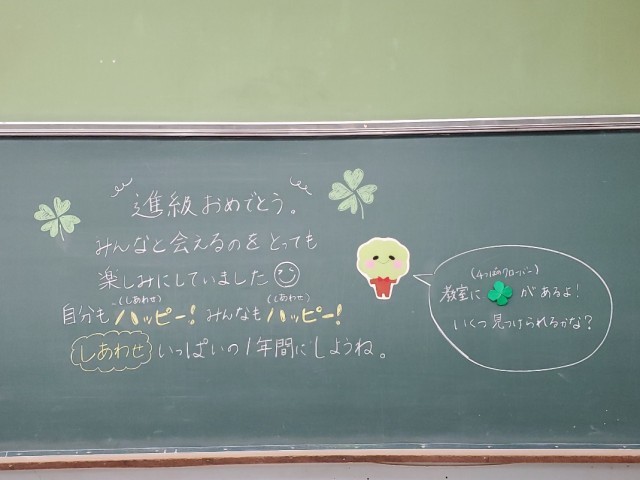 進級おめでとう。
みんなと会えるのをとっても
楽しみにしていました
(しあわせ) (しあわせ)
自分もハッピー!みんなもハッピー!
しあわせいっぱいの1年間にしようね。
(4つばのクローバー)
教室に があるよ!
いくつ見つけられるかな?